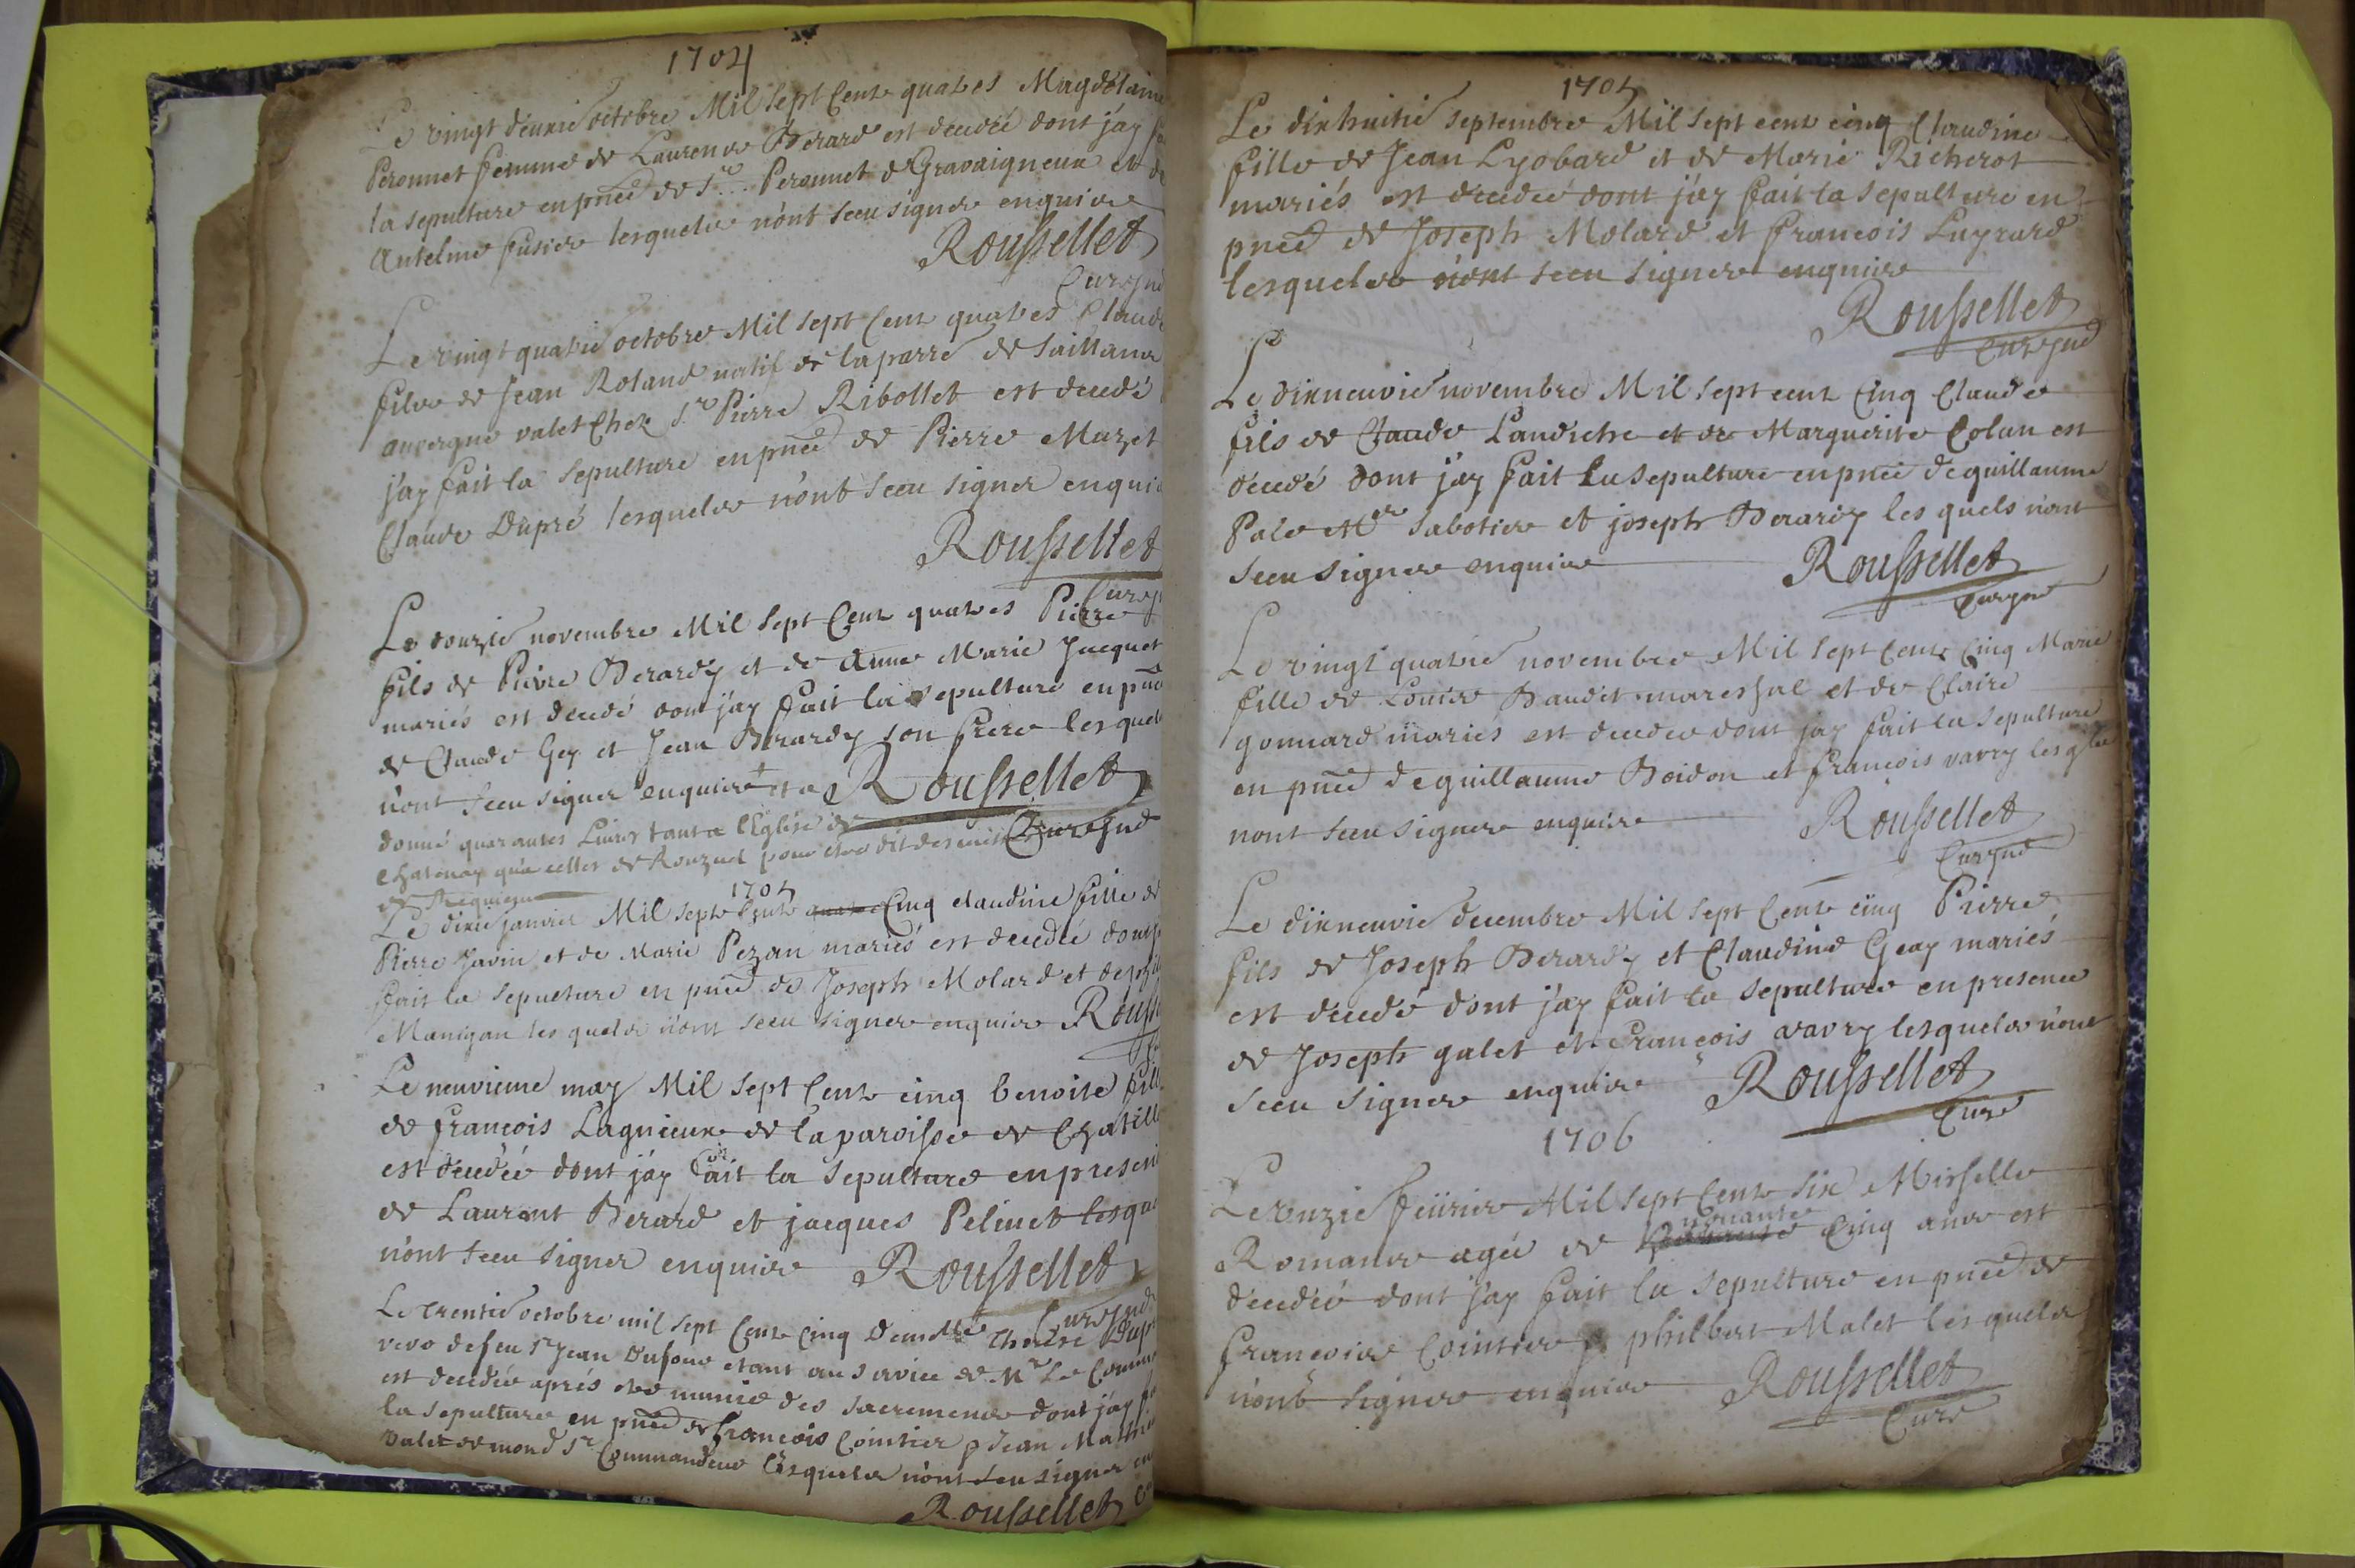 1704
Le vingt deuxie octobre Mil sept Cent quatres Magdelaine
Peronnet femme de Laurence Berard est decedée dont j'ay
la sepulture en pnce de Sr Peronnet de Gravaigneux et de
Antelme fusier lesquels n'ont sceu signer enquire
Rousselet
Curé
Le vingt quatrie octobre Mil sept Cent quatres Claude
fils de Jean Roland natif de la parre de Saillans
auvergne valet Chez Sr Pierre Ribollet est decedé
j'ay fait la sepulture en pnce de Pierre Mazet
Claude Dupré lesquels n'ont sceu signer enquire
Rousselet
Curé
Le douzie novembre Mil sept Cent quatres Pierre
fils de Pierre Berardy et de Anne Marie Jacquet
mariés est decedé dont j'ay fait la sepulture en pnce
de Claude Gey et Jean Berardy son frere lesquels
n'ont sceu signer enquire + et a Rousselet
donné quarantes Livres tant a l'Eglise de
Chatenay qu'a celles de Ronzuel pour etre dit des messes Curé
de Requiem
1705
Le dixie janvier Mil sept Cent Cinq claudine fille de
Pierre Javin et de Marie Pezan mariés est decedée dont
fait la sepulture en pnce de Joseph Molard et de
Manigan les quels n'ont sceu signer enquire
Le neuvieme may Mil sept Cent cinq benoite fille
de françois Lagnieux de la paroisse de Chatill
est decedée dont j'ay fait la sepulture en presence
de Laurent Berard et jacques Pelinet lesquels
n'ont sceu signer enquire Rousselet
Curé
Le trentie octobre mil sept Cent Cinq Demlle Therese
veve de feu Sr Jean Dufour etant au service de Mr Le Comm
est decedée aprés etre munie des sacremens dont j'ay
la sepulture en pnce de françois Cointier Jean
valet de mond Sr Commandeur lesquels n'ont sceu signer
Rousselet
1705
Le dixhuitie septembre Mil sept cent cinq Claudine
fille de Jean Lyobard et de Marie Richerot
mariés est decedée dont j'ay fait la sepulture en
pnce de Joseph Molard et françois Luyrard
lesquels n'ont sceu signer enquire
Rousselet
Curé
Le dixneuvie novembre Mil sept cent Cinq Claude
fils de Claude Landiche et de Marguerite Colan est
decedé dont j'ay fait la sepulture en pnce de guillaume
Pale Mer Sabotier et joseph Berardy les quels n'ont
sceu signer enquire Rousselet
Curé
Le vingt quatrie novembre Mil sept Cent Cinq Marie
fille de Louis Baudet mareshal et de Claire
gonnard mariés est decedée dont j'ay fait la sepulture
en pnce de guillaume Boidon et françois vavry lesqls
nont sceu signer enquire Rousselet
Curé
Le dixneuvie decembre Mil sept Cent cinq Pierre
fils de Joseph Berardy et Claudine Geay mariés
est decedé dont j'ay fait la sepulture en presence
de Joseph galet et françois vavry lesquels n'ont
sceu signer enquire Rousselet
Curé
1706
Le onzie feuvrier Mil sept Cent Six Misselle
Romans agée de Cinq ans est
decedée dont j'ay fait la sepulture en pnce de
françois Cointier philbert Malet lesquels
n'ont signer enquire Rousselet
Curé